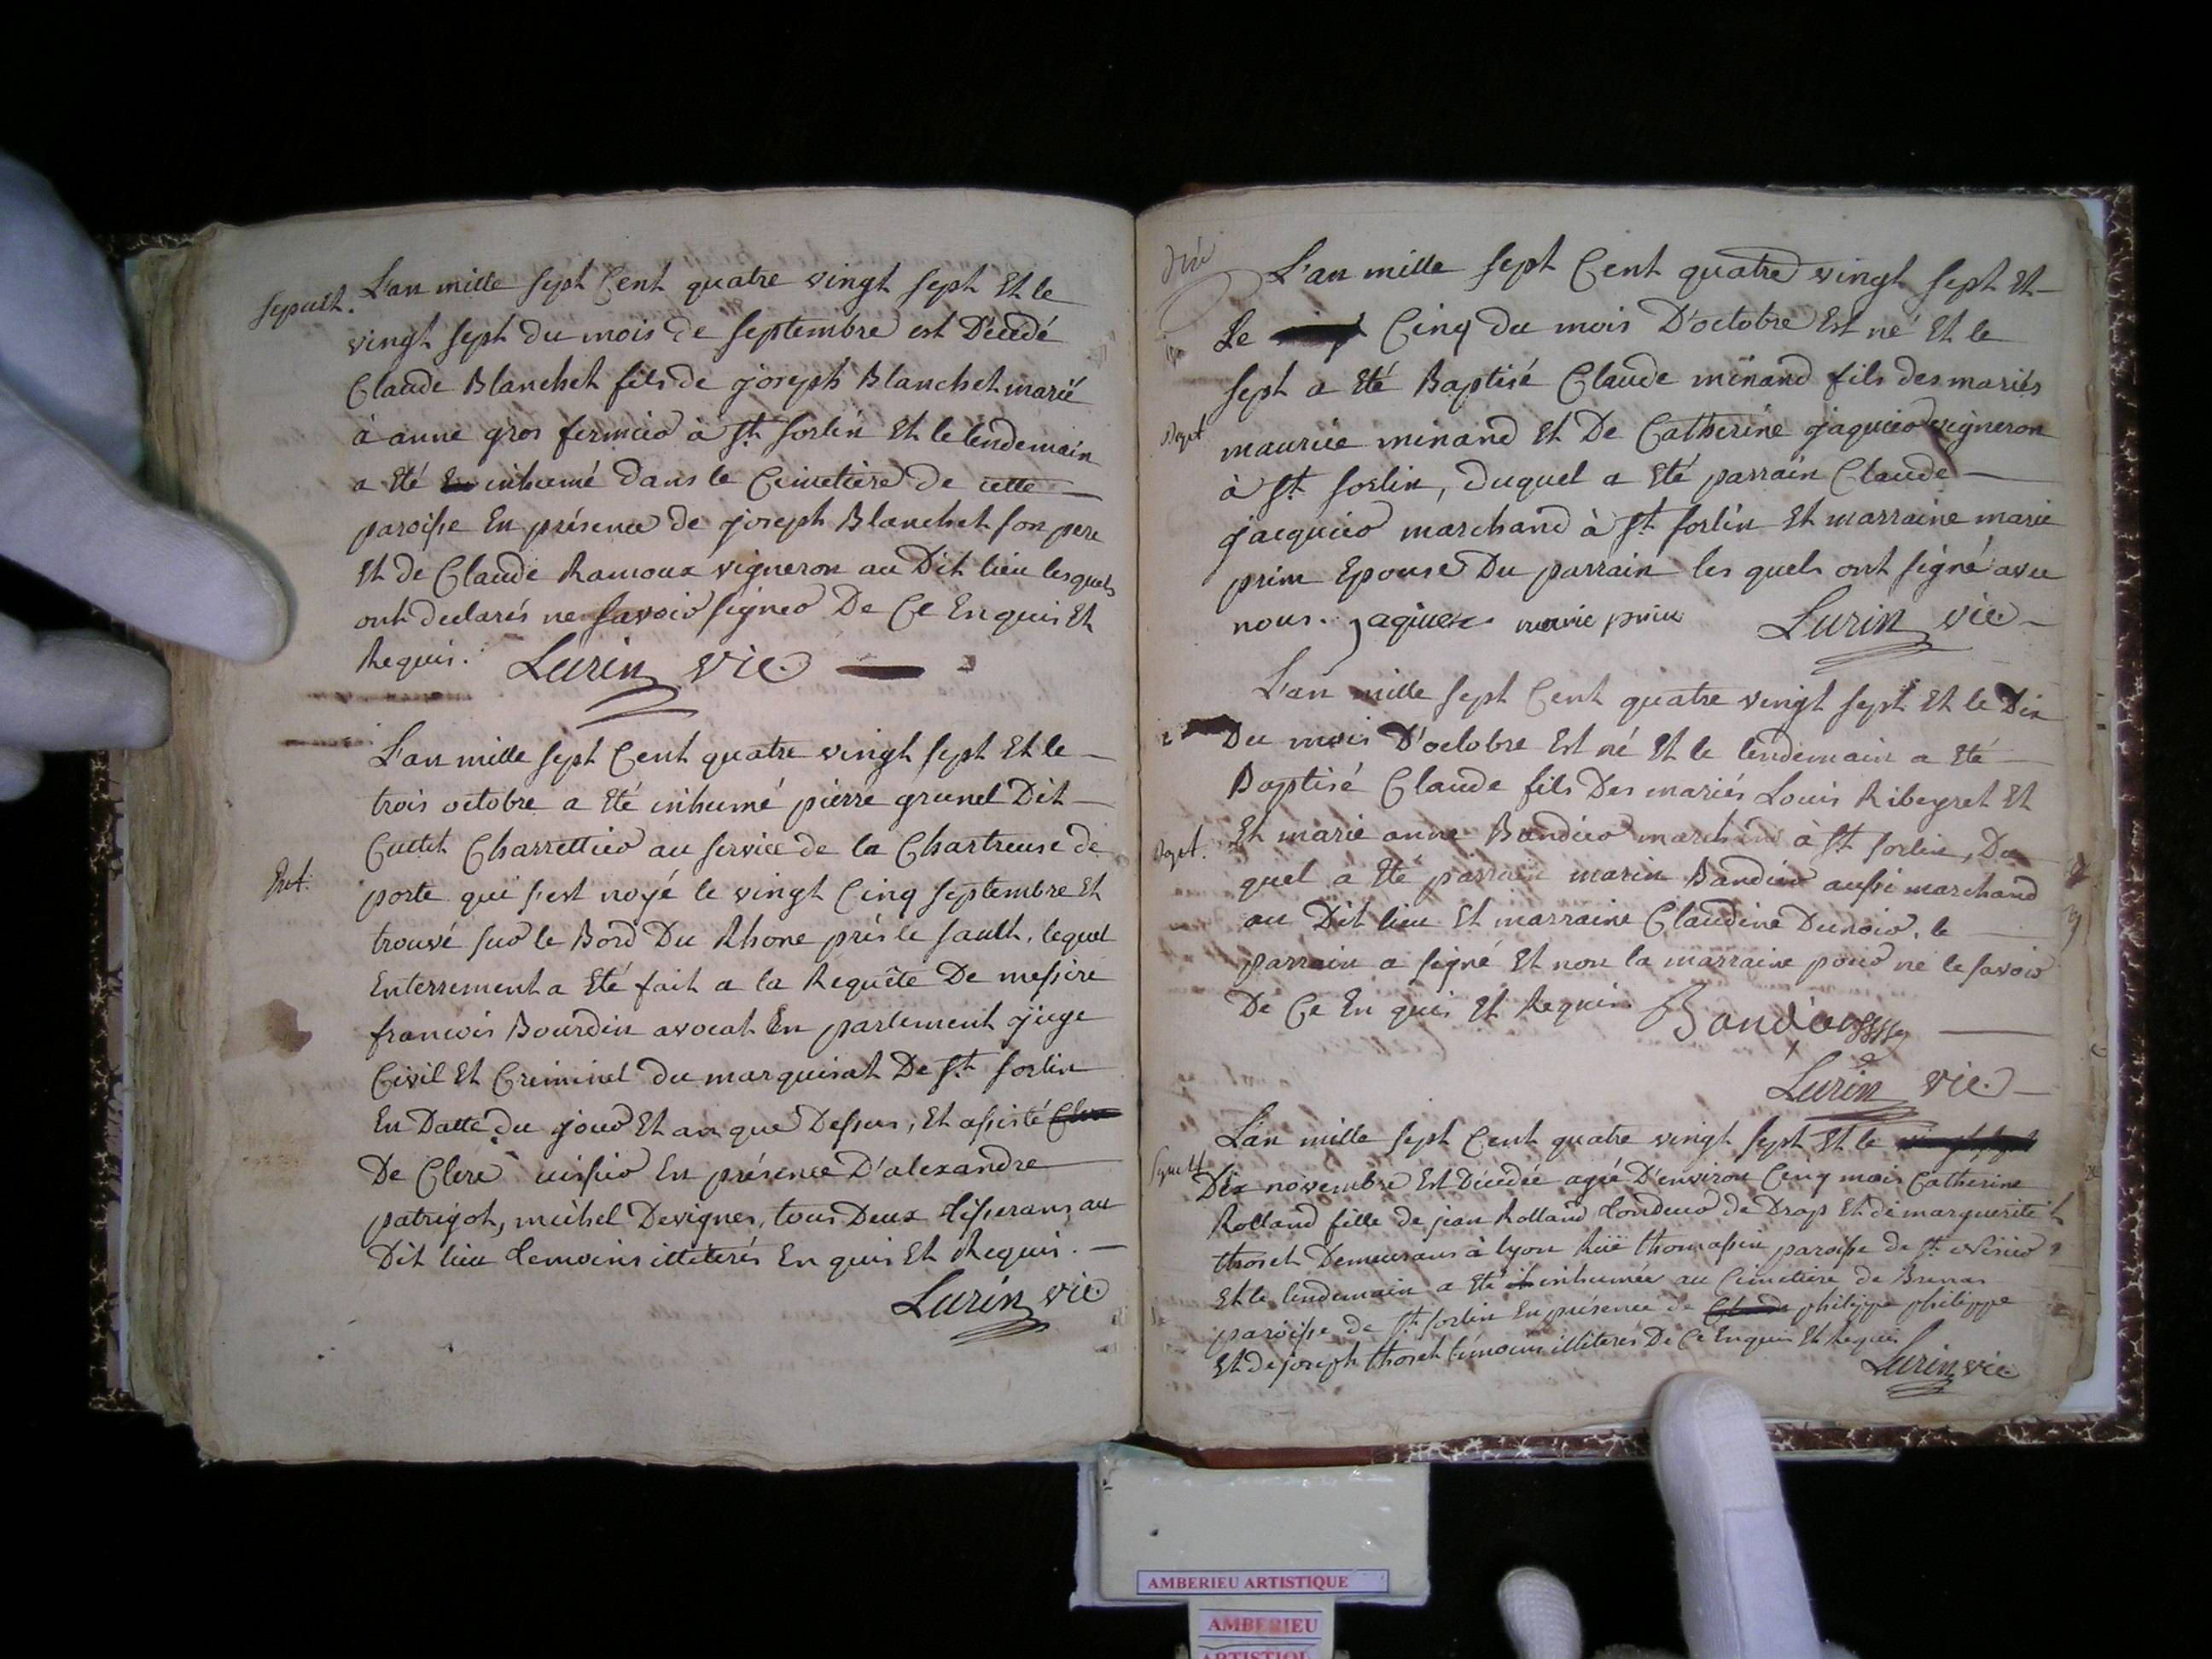 Sepult.
L'an mille sept Cent quatre vingt sept Et le
vingt sept du mois de Septembre est Décédé
Claude Blanchet fils de joseph Blanchet marié
à anne gros fermier à St. Sorlin Et le lendemain
a Eté inhumé dans le Cimetière de cette
paroisse En présence de joseph Blanchet son pere
Et de Claude Ramoux vigneron au Dit lieu lesquels
ont declarés ne savoir signer De Ce Enquis Et
Requis. Lurin vic
L'an mille sept Cent quatre vingt sept Et le
trois octobre a Eté inhumé pierre grunel Dit
Cuttet Charrettier au service de la Chartreuse de
Ent.
porte qui s'est noyé le vingt Cinq septembre Et
trouvé sur le Bord Du Rhone près le sault, lequel
Enterrement a Eté fait a la Requête De messire
francois Bourdin avocat En parlement juge
Civil Et Criminel du marquisat De St. Sorlin
En Datte du jour Et an que Dessus, Et assisté
De Clere En présence D'alexandre
patrigot, michel Devignes, tous Deux tisserans au
Dit lieu temoins illiterés Enquis Et Requis.
Lurin vic
L'an mille sept Cent quatre vingt sept Et
Le Cinq du mois D'octobre Est né Et le
sept a Eté Baptisé Claude minand fils des mariés
Bapt.
maurice minand Et De Catherine jaquier vigneron
à St. Sorlin, duquel a Eté parrain Claude
jacquier marchand à St. Sorlin Et marraine marie
prim Epouse Du parrain les quels ont signé avec
nous. jaquier marie prim Lurin vic
L'an mille sept Cent quatre vingt sept Et le Dix
Du mois D'octobre Est né Et le lendemain a Eté
Baptisé Claude fils Des mariés Louis Ribeyret Et
Bapt.
Et marie anne Bandier marchand à St. Sorlin, Du
quel a Eté parrain marin Bandier aussi marchand
au Dit lieu Et marraine Claudine Dunoir. le
parrain a signé Et non la marraine pour ne le savoir
De Ce En quis Et Requis Bandier
Lurin vic
L'an mille sept Cent quatre vingt sept Et le
Sepult
Dix novembre Est Décédée agée D'environ Cinq mois Catherine
Rolland fille de jean Rolland tondeur de Drap Et de marguerite
thoset Demeurans à lyon Rüe thomassin paroisse de St. Nizier
Et le lendemain a Eté inhumée au Cimetière de Brenas
paroisse de St. Sorlin En présence de philippe philippe
Et de joseph thoset témoins illiterés De Ce Enquis Et Requis
Lurin vic
AMBERIEU ARTISTIQUE
AMBERIEU
ARTISTIQUE